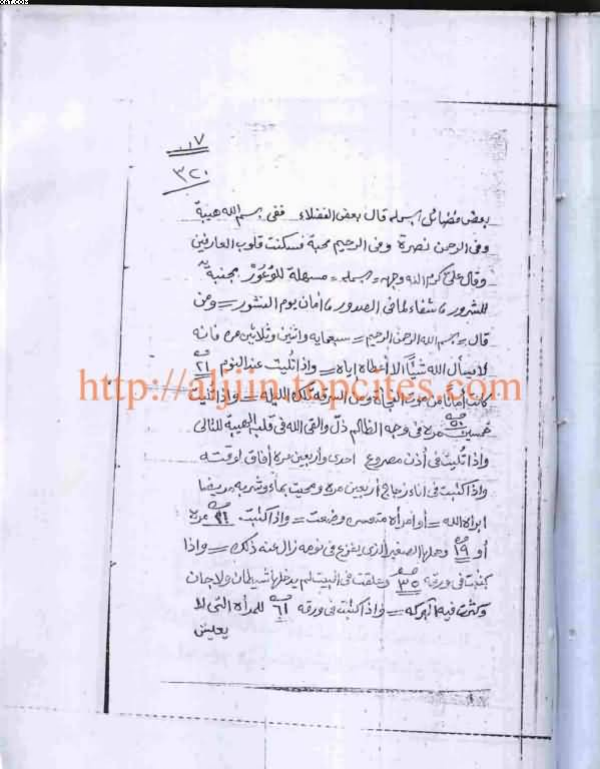 ١٧
٣٢٠
بعض فضائل البسملة قال بعض الفضلاء ففى بسم الله هيبة
وفى الرحمن نصرة وفى الرحيم محبة فسكنت قلوب العارفين
وقال على كرم الله وجهه البسملة مسهلة للوعور مجنبة
للشرور شفاء لما فى الصدور امان يوم النشور ومن
قال بسم الله الرحمن الرحيم سبعمايه واثنين وثلاثين مره فانه
لا يسأل الله شيئا الا أعطاه اياه واذا تليت عند النوم ٢١ مره
كانت أمانا من موت الفجأة ومن السرقه تلك الليله واذا تليت
خمسين ٥٠ مرة فى وجه الظالم ذل والقى الله فى قلبه الهيبة للتالى
واذا تليت فى أذن مصروع احدى وأربعين مره أفاق لوقته
واذا كتبت فى اناء زجاج أربعين مره ومحيت بماء وشربه مريضا
ابراه الله أو امرأه متعسره وضعت واذا كتبت ٢١ مره
أو ١٩ وحملها الصغير الذى يفزع فى نومه زال عنه ذلك واذا
كتبت فى ورقه ٣٥ وعلقت فى البيت لم يدخلها شيطان ولا جان
وكثرت فيه البركه واذا كتبت فى ورقه ٦١ للمرأه التى لا
يعيش
http://aljjin.topcites.com